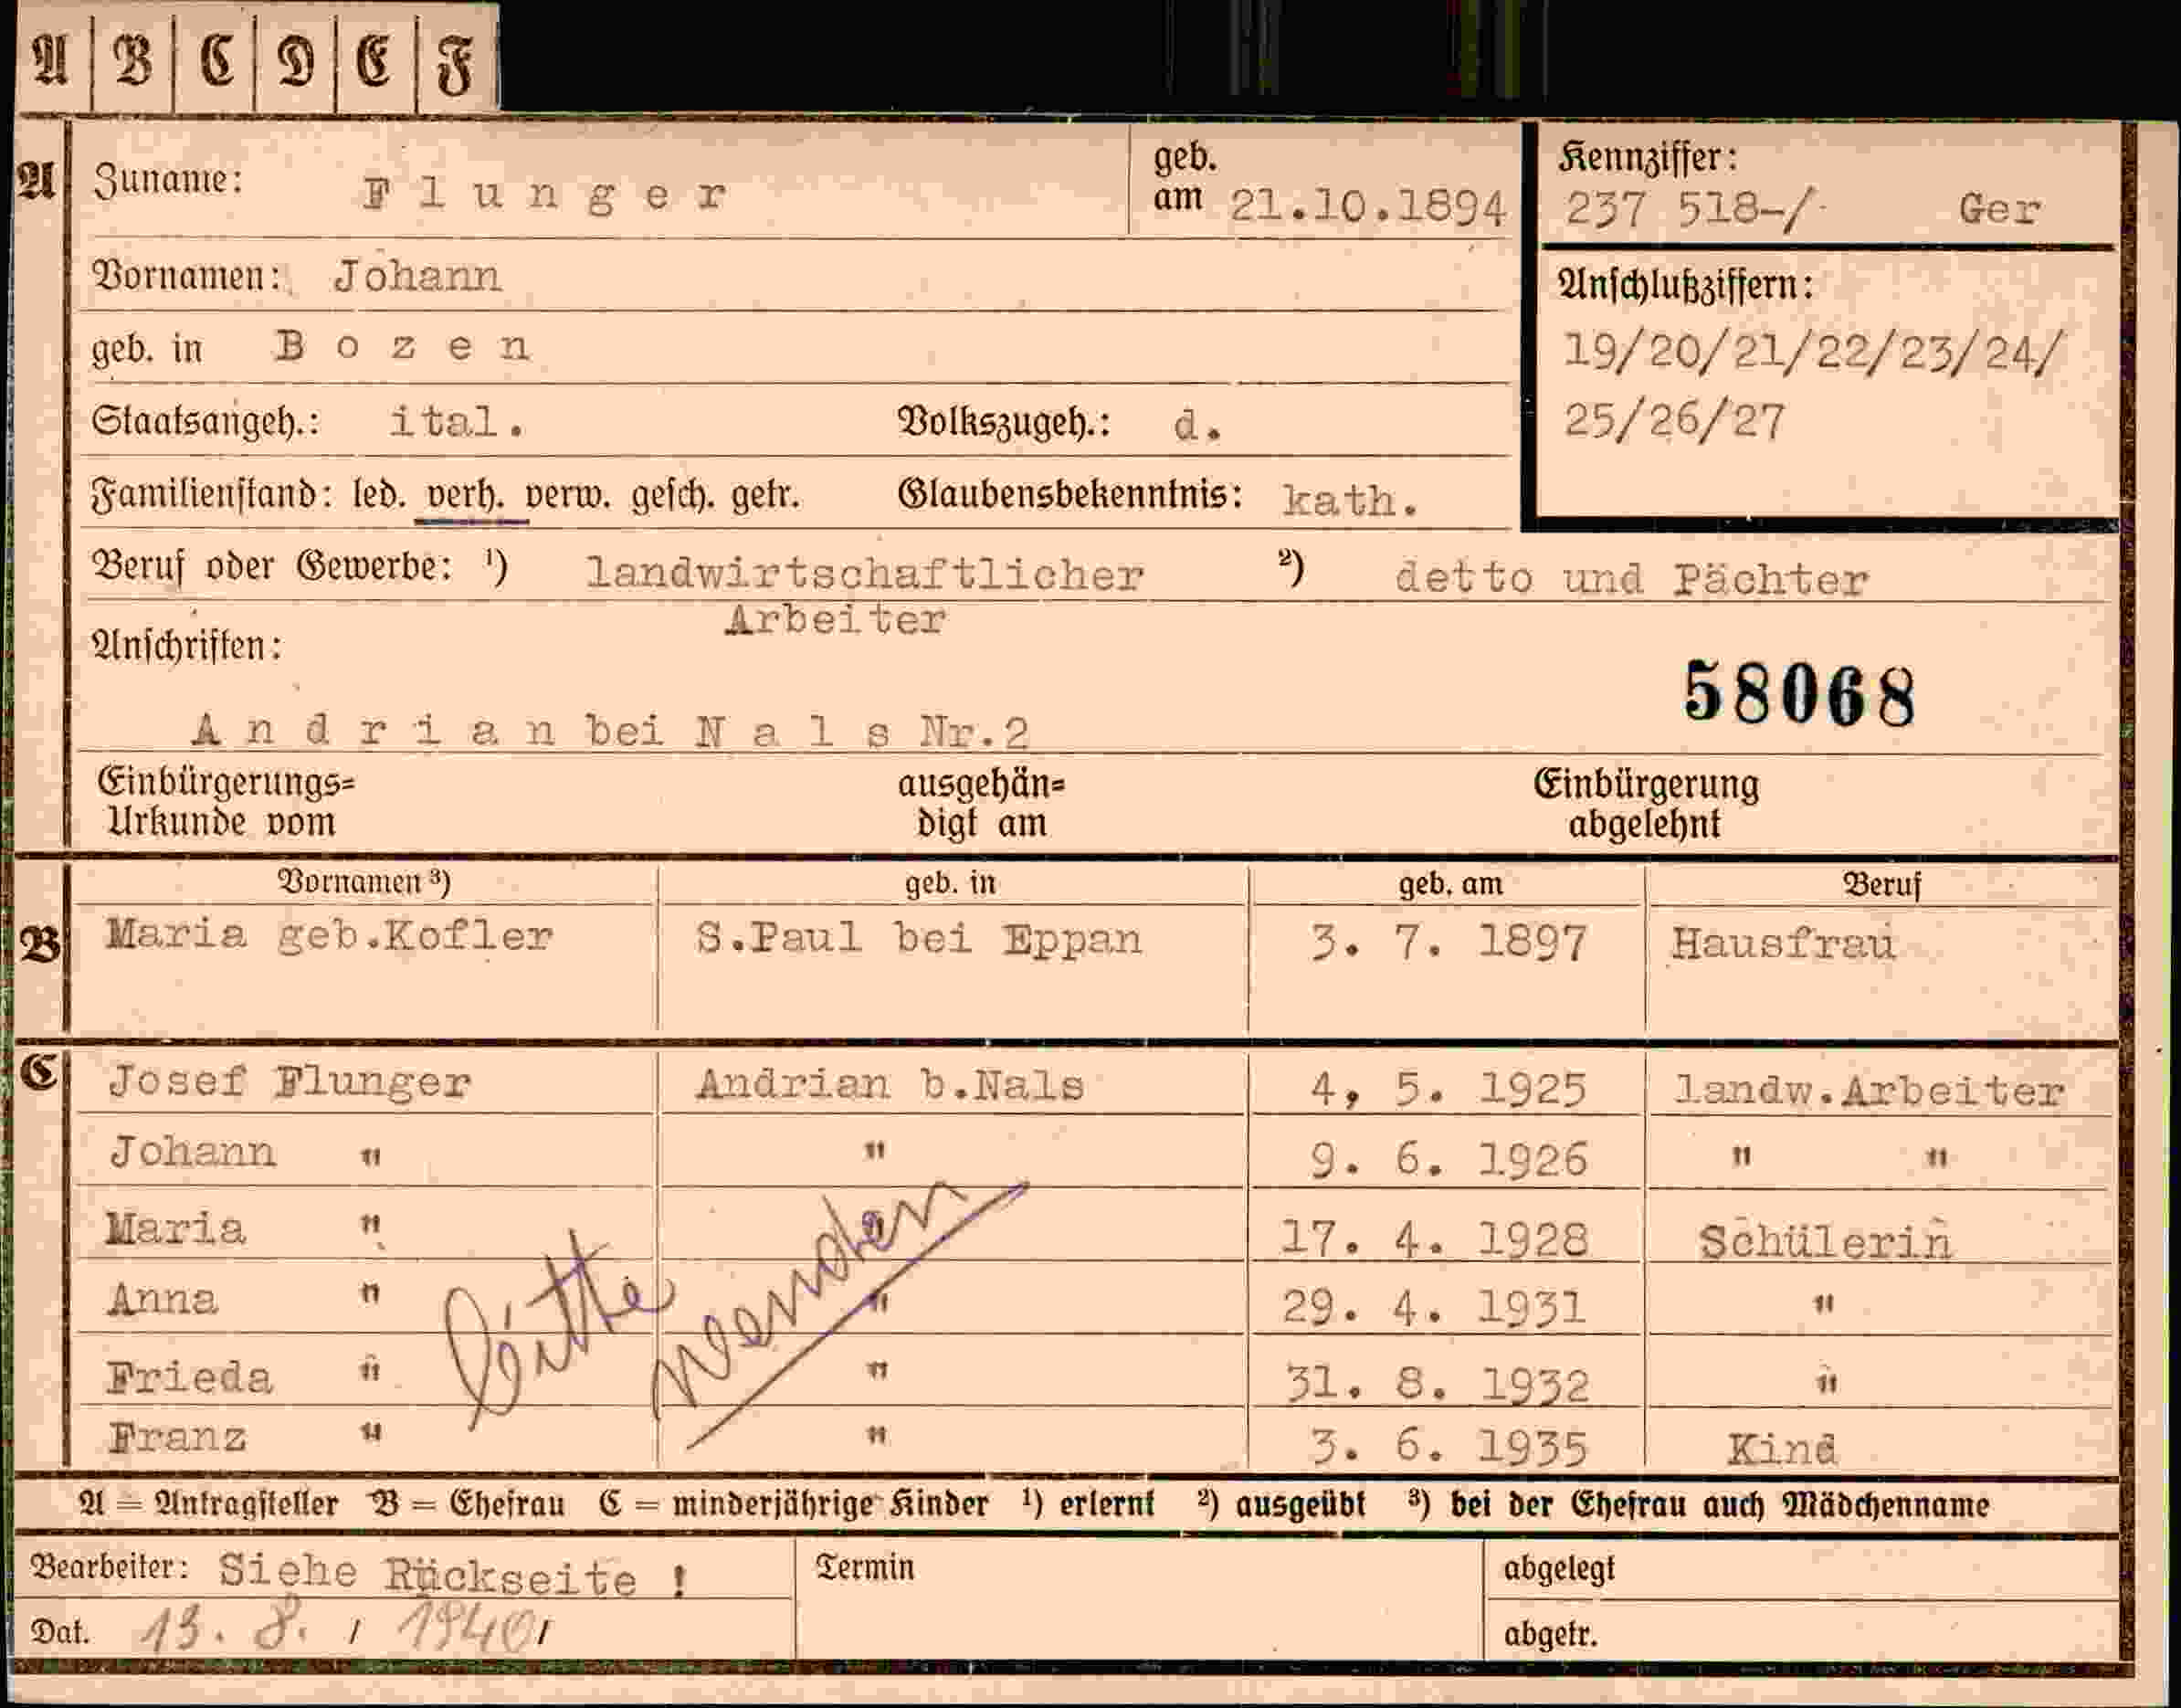 A B C D E F
A Zuname: Flunger geb. am 21.10.1894 Kennziffer: 237 518-/- Ger
Vornamen: Johann
Anschlußziffern:
geb. in Bozen
19/20/21/22/23/24/
Staatsangeh.: ital. Volkszugeh.: d.
25/26/27
Familienstand: led. verh. verw. gesch. getr. Glaubensbekenntnis: kath.
Beruf oder Gewerbe: ¹) landwirtschaftlicher ²) detto und Pächter
Arbeiter
Anschriften:
58068
Andrian bei Nals Nr.2
Einbürgerungs= ausgehän= Einbürgerung
Urkunde vom digt am abgelehnt
Vornamen ³) geb. in geb. am Beruf
B Maria geb.Kofler S.Paul bei Eppan 3. 7. 1897 Hausfrau
C Josef Flunger Andrian b.Nals 4, 5. 1925 landw.Arbeiter
Johann " " 9. 6. 1926 " "
Maria " " 17. 4. 1928 Schülerin
Anna " " 29. 4. 1931 "
Frieda " " 31. 8. 1932 "
Franz " " 3. 6. 1935 Kind
bitte wenden
A = Antragsteller B = Ehefrau C = minderjährige Kinder ¹) erlernt ²) ausgeübt ³) bei der Ehefrau auch Mädchenname
Bearbeiter: Siehe Rückseite ! Termin abgelegt
Dat. 13. 8. 1940 abgetr.